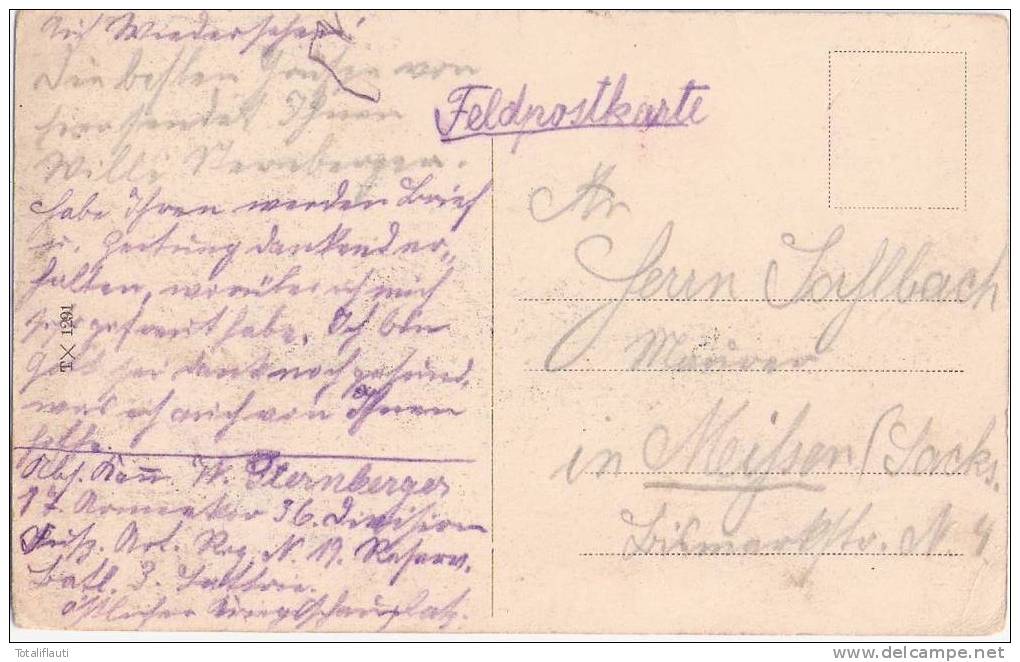 Auf Wiedersehen!
Die besten Grüße von
sendet Ihnen
Willi Sternberger.
habe Ihren werden Brief
u. Zeitung dankend er-
halten, worüber ich mich
sehr gefreut habe. Ich bin
Gott sei dank noch gesund,
was ich auch von Ihnen
hoffe.
Abs. Kan. W. Sternberger
17. Armeekor 36. Division
Fusz. Art. Reg. N. 19. Reserv.
Batl. 3. Battrie.
östlicher Kriegsschauplatz.
TX 1291
Feldpostkarte
An
Herrn Sahlbach
Maurer
in Meissen (Sachs.
Bismarkstr. N. 4
Totaliflauti
delcampe.net